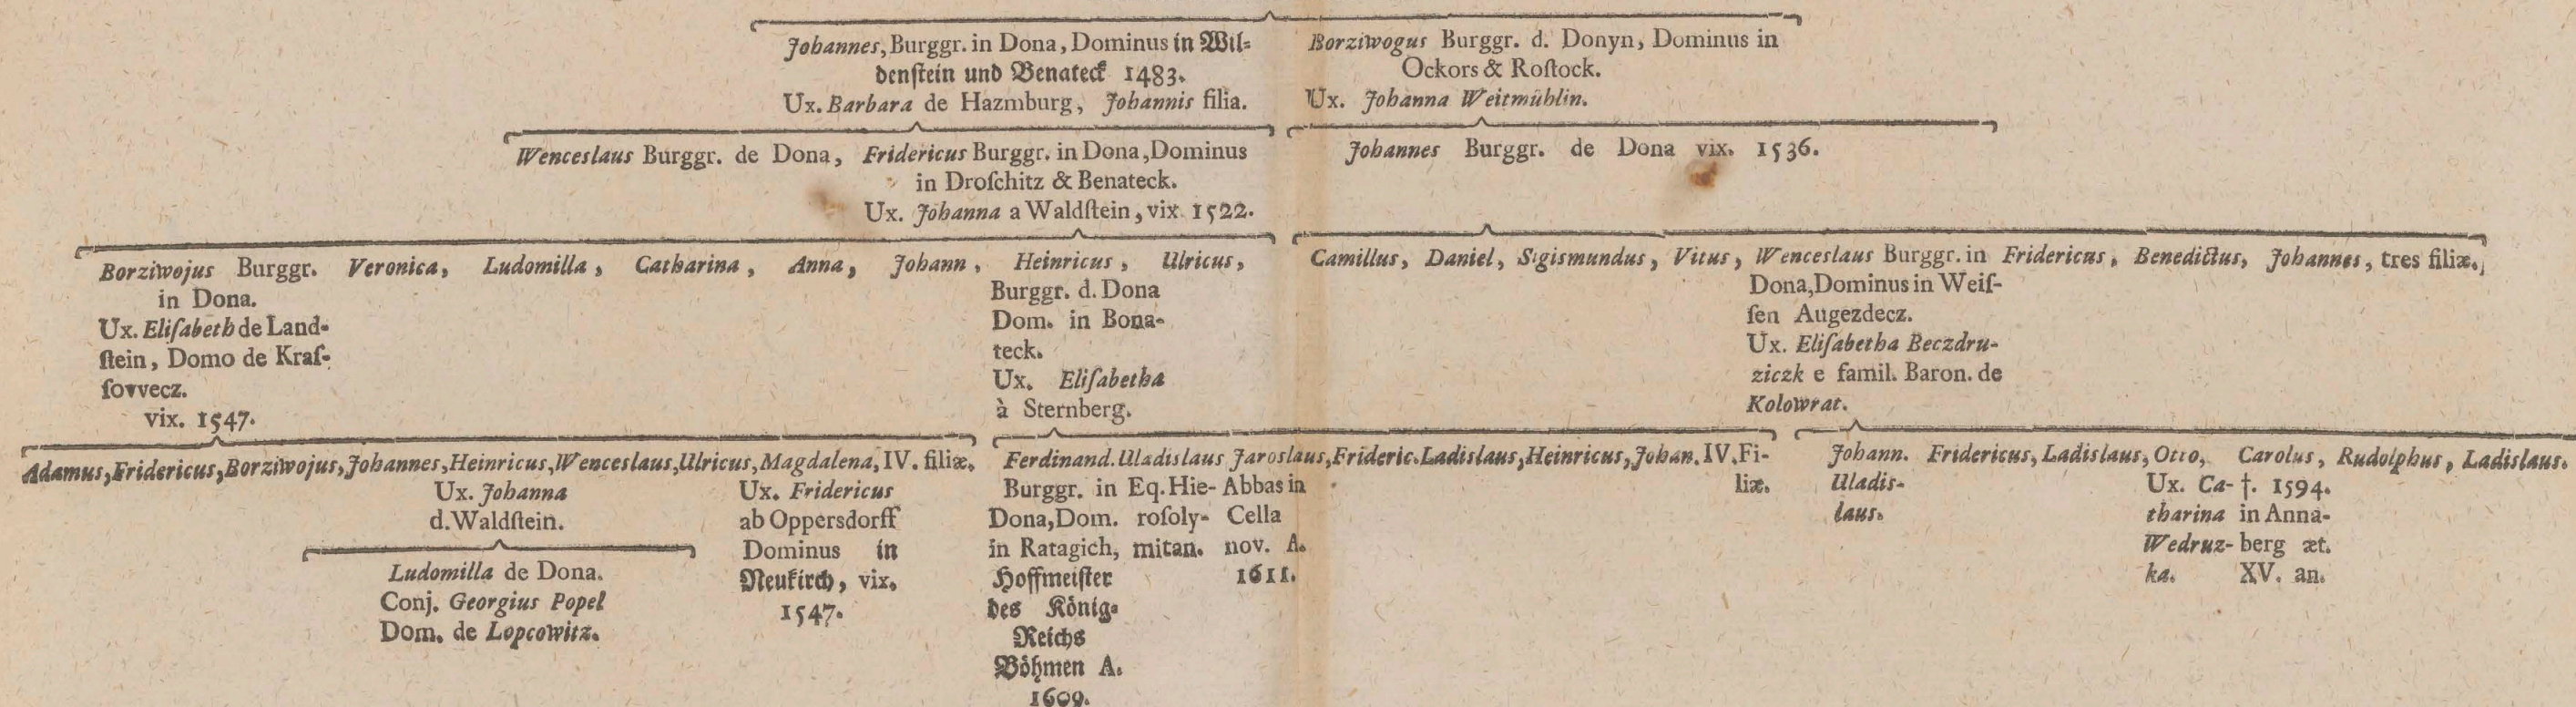 Johannes, Burggr. in Dona, Dominus in Wil=
denſtein und Benateck 1483.
Ux. Barbara de Hazmburg, Johannis filia.
Borziwogus Burggr. d. Donyn, Dominus in
Ockors & Roſtock.
Ux. Johanna Weitmühlin.
Wenceslaus Burggr. de Dona,
Fridericus Burggr. in Dona, Dominus
in Droſchitz & Benateck.
Ux. Johanna a Waldſtein, vix 1522.
Johannes Burggr. de Dona vix. 1536.
Borziwojus Burggr.
in Dona.
Ux. Eliſabeth de Land-
ſtein, Domo de Kraſ-
ſovvecz.
vix. 1547.
Veronica, Ludomilla, Catharina, Anna, Johann,
Heinricus,
Burggr. d. Dona
Dom. in Bona-
teck.
Ux. Eliſabetha
à Sternberg.
Ulricus,
Camillus, Daniel, Sigismundus, Vitus,
Wenceslaus Burggr. in
Dona, Dominus in Weiſ-
ſen Augezdecz.
Ux. Eliſabetha Beczdru-
ziczk e famil. Baron. de
Kolowrat.
Fridericus, Benedictus, Johannes, tres filiæ.
Adamus, Fridericus, Borziwojus,
Johannes, Heinricus,
Ux. Johanna
d. Waldſtein.
Wenceslaus, Ulricus,
Magdalena,
Ux. Fridericus
ab Oppersdorff
Dominus in
Neukirch, vix.
1547.
IV. filiæ.
Ludomilla de Dona.
Conj. Georgius Popel
Dom. de Lopcowitz.
Ferdinand.
Burggr. in
Dona, Dom.
in Ratagich,
Hoffmeiſter
des König=
Reichs
Böhmen A.
1609.
Uladislaus
Eq. Hie-
roſoly-
mitan.
Jaroslaus,
Abbas in
Cella
nov. A.
1611.
Frideric. Ladislaus, Heinricus, Johan. IV. Fi-
liæ.
Johann.
Uladis-
laus.
Fridericus, Ladislaus,
Otto,
Ux. Ca-
tharina
Wedruz-
ka.
Carolus,
†. 1594.
in Anna-
berg æt.
XV. an.
Rudolphus, Ladislaus.